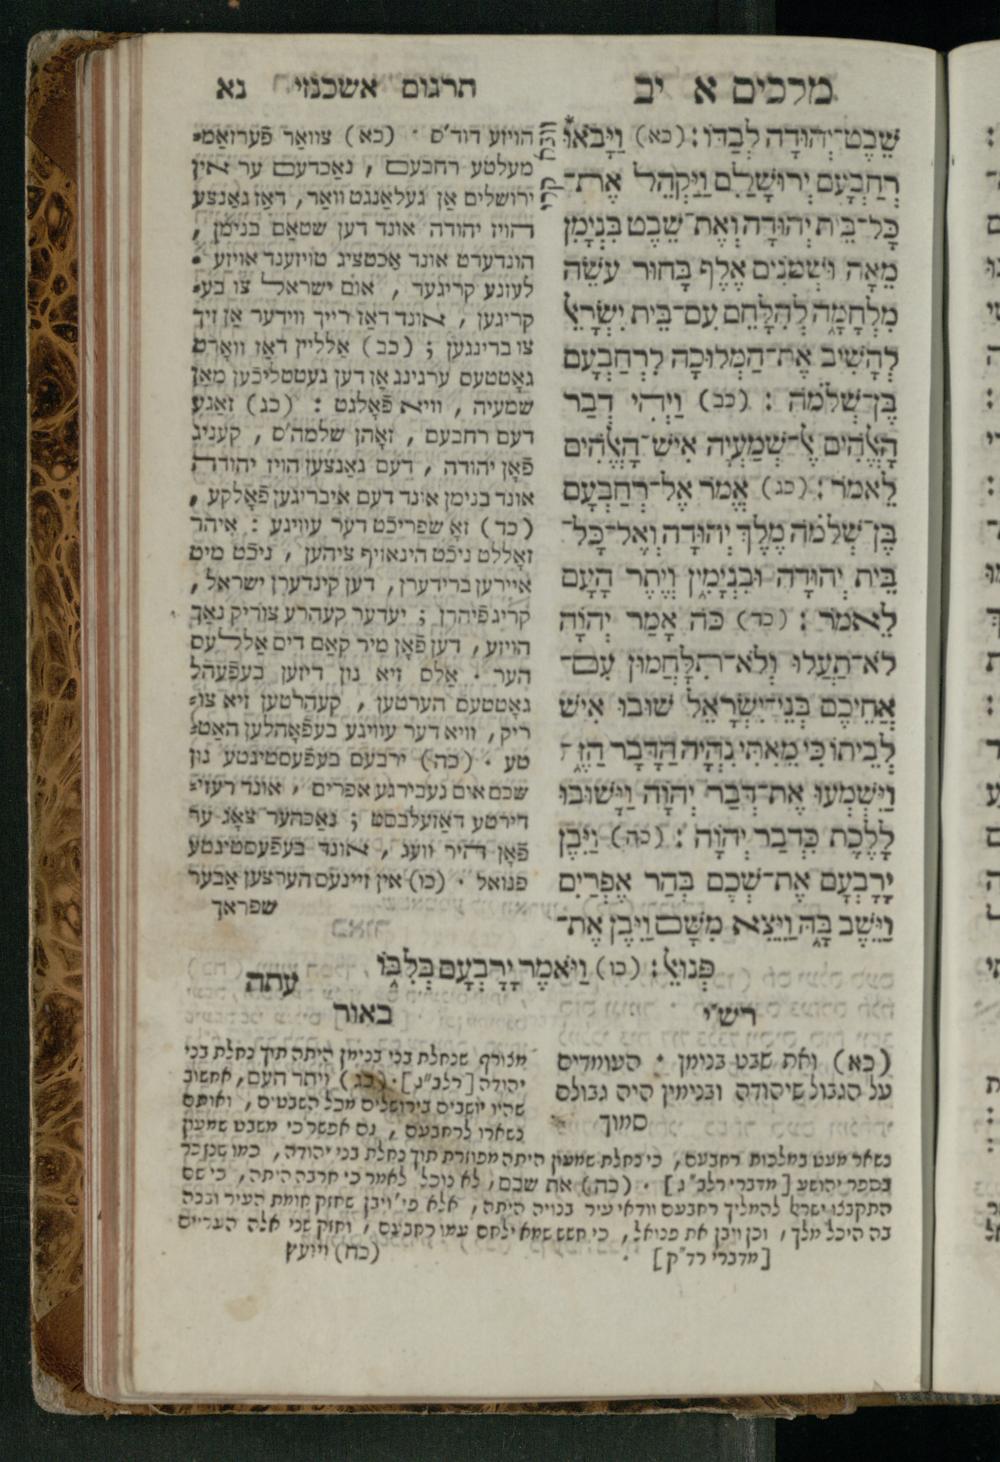 מלכים א יב
תרגום אשכנזי נא
שֵׁבֶט־יְהוּדָה לְבַדּוֹ: (כא) וַיָּבֹאוּ
רְחַבְעָם יְרוּשָׁלַ͏ִם וַיַּקְהֵל אֶת־
כָּל־בֵּית יְהוּדָה וְאֶת־שֵׁבֶט בִּנְיָמִן
מֵאָה וּשְׁמֹנִים אֶלֶף בָּחוּר עֹשֵׂה
מִלְחָמָה לְהִלָּחֵם עִם־בֵּית יִשְׂרָאֵל
לְהָשִׁיב אֶת־הַמְּלוּכָה לִרְחַבְעָם
בֶּן־שְׁלֹמֹה: (כב) וַיְהִי דְּבַר
הָאֱלֹהִים אֶל־שְׁמַעְיָה אִישׁ־הָאֱלֹהִים
לֵאמֹר: (כג) אֱמֹר אֶל־רְחַבְעָם
בֶּן־שְׁלֹמֹה מֶלֶךְ יְהוּדָה וְאֶל־כָּל־
בֵּית יְהוּדָה וּבִנְיָמִין וְיֶתֶר הָעָם
לֵאמֹר: (כד) כֹּה אָמַר יְהוָֹה
לֹא־תַעֲלוּ וְלֹא־תִלָּחֲמוּן עִם־
אֲחֵיכֶם בְּנֵי־יִשְׂרָאֵל שׁוּבוּ אִישׁ
לְבֵיתוֹ כִּי מֵאִתִּי נִהְיָה הַדָּבָר הַזֶּה
וַיִּשְׁמְעוּ אֶת־דְּבַר יְהוָֹה וַיָּשׁוּבוּ
לָלֶכֶת כִּדְבַר יְהוָֹה: (כה) וַיִּבֶן
יָרָבְעָם אֶת־שְׁכֶם בְּהַר אֶפְרַיִם
וַיֵּשֶׁב בָּהּ וַיֵּצֵא מִשָּׁם וַיִּבֶן אֶת־
פְּנוּאֵל: (כו) וַיֹּאמֶר יָרָבְעָם בְּלִבּוֹ
עתה
ויבא קרי
הויזע דוד'ס . (כא) צוואַר פֿערזאַמ=
מעלטע רחבעם, נאַכדעם ער אין
ירושלים אַן געלאַנגט וואַר, דאַז גאַנצע
הויז יהודה אונד דען שטאַם בנימן,
הונדערט אונד אַכטציג טויזענד אויזע=
לעזנע קריגער, אום ישראל צו בע=
קריגען, אונד דאַז רייך ווידער אַן זיך
צו ברינגען; (כב) אַלליין דאַז וואָרט
גאָטטעס ערגינג אַן דען געטטליכֿען מאַן
שמעיה, וויא פֿאָלגט: (כג) זאַגע
דעם רחבעם, זאָהן שלמה'ס, קעניג
פֿאָן יהודה, דעם גאַנצען הויז יהודה
אונד בנימן אונד דעם איבריגען פֿאָלקע,
(כד) זאָ שפריכֿט דער עוויגע: איהר
זאָללט ניכֿט הינאויף ציהען, ניכֿט מיט
אייערן ברידערן, דען קינדערן ישראל,
קריג פֿיהרן; יעדער קעהרע צוריק נאָך
הויזע, דען פֿאָן מיר קאַם דיס אַללעס
הער. אַלס זיא נון דיזען בעפֿעהל
גאָטטעס הערטען, קעהרטען זיא צו=
ריק, וויא דער עוויגע בעפֿאָהלען האַט=
טע. (כה) ירבעם בעפֿעסטיגטע נון
שכם אים געבירגע אפרים, אונד רעזי=
דירטע דאַזעלבסט; נאַכהער צאָג ער
פֿאָן היר וועג, אונד בעפֿעסטיגטע
פנואל. (כו) אין זיינעם הערצען אַבער
שפראך
רש"י
(כא) ואת שבט בנימן. העומדים
על הגבול שיהודה ובנימין היה גבולם
סמוך
באור
מצורף שנחלת בני בנימן היתה תוך נחלת בני
יהודה [רלב"ג]. (כג) ויתר העם, אחשוב
שהיו יושבים בירושלים מכל השבטים, ואותם
נשארו לרחבעם, גם אפשר כי משבט שמעון
נשאר מעט במלכות רחבעם, כי נחלת שמעון היתה מפוזרת תוך נחלת בני יהודה, כמו שנזכר
בספר יהושע [מדברי רלב"ג]. (כה) את שכם, לא נוכל לאמר כי חרבה היתה, כי שם
התקבצו ישראל להמליך רחבעם וודאי עיר בנויה היתה, אלא פי' ויבן שחזק חומת העיר ובנה
בה היכל מלך, וכן ויבן את פנואל, כי חשש שמא ילחם עמו רחבעם, וחזק שני אלה הערים
[מדברי רד"ק]
(כח) ויועץ